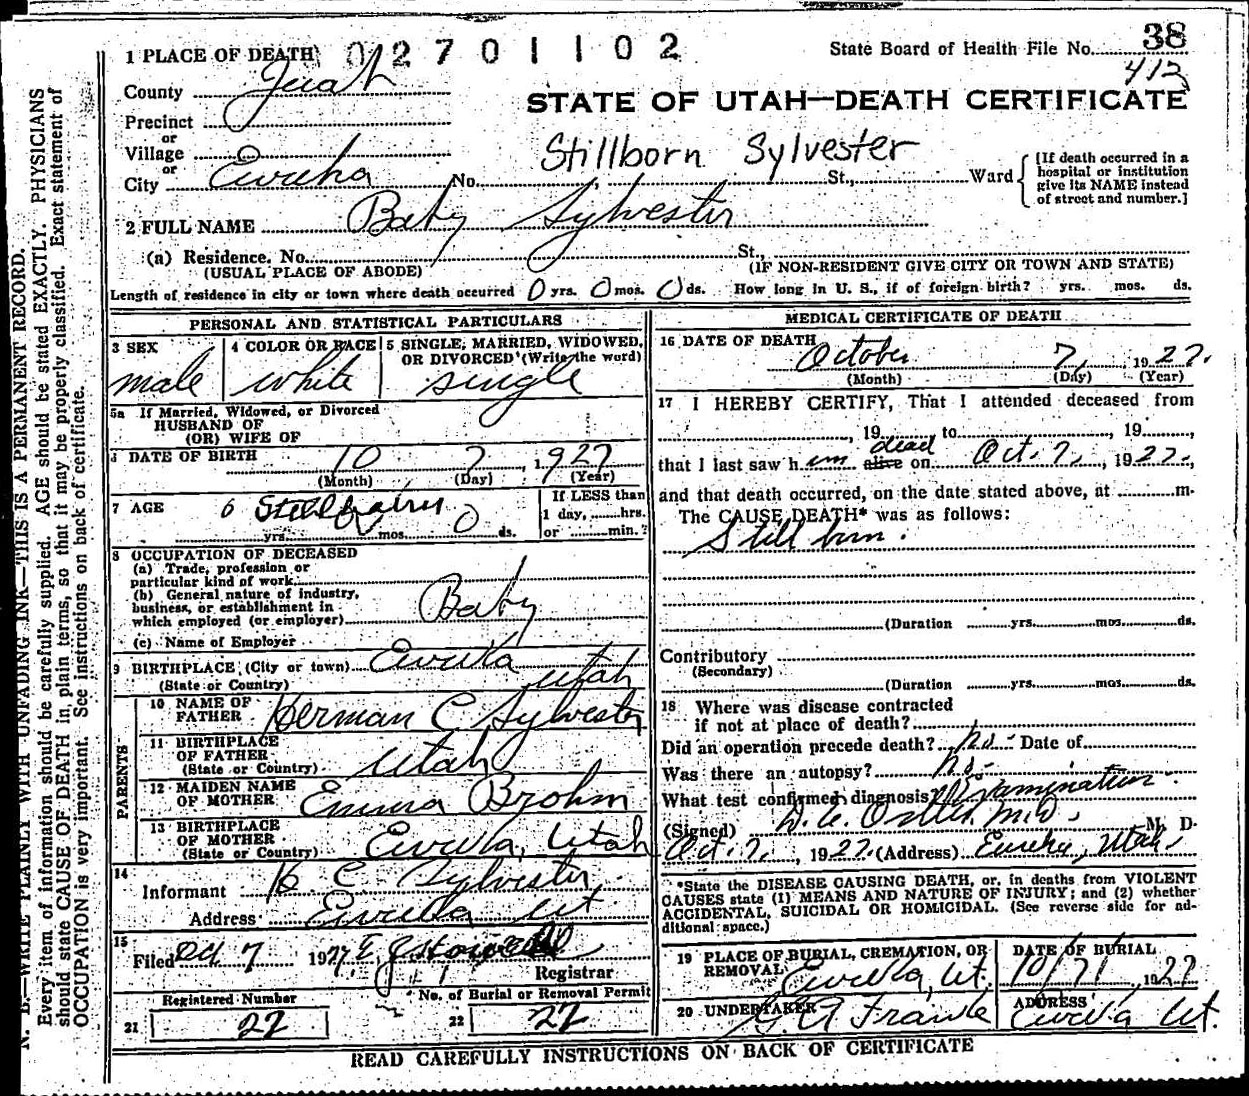 1 PLACE OF DEATH 02701102 State Board of Health File No. 38
412
County Juab
STATE OF UTAH—DEATH CERTIFICATE
Precinct
or
Village
Stillborn Sylvester
or
City Eureka No. St., Ward { [If death occurred in a hospital or institution give its NAME instead of street and number.]
2 FULL NAME Baby Sylvester
(a) Residence. No. St.,
(USUAL PLACE OF ABODE) (IF NON-RESIDENT GIVE CITY OR TOWN AND STATE)
Length of residence in city or town where death occurred 0 yrs. 0 mos. 0 ds. How long in U. S., if of foreign birth? yrs. mos. ds.
PERSONAL AND STATISTICAL PARTICULARS
3 SEX
male
4 COLOR OR RACE
white
5 SINGLE, MARRIED, WIDOWED, OR DIVORCED (Write the word)
single
5a If Married, Widowed, or Divorced
HUSBAND OF
(OR) WIFE OF
6 DATE OF BIRTH 10 7, 1927
(Month) (Day) (Year)
7 AGE 6 Stillborn 0
yrs. mos. ds.
If LESS than
1 day, hrs.
or min.?
8 OCCUPATION OF DECEASED
(a) Trade, profession or
particular kind of work
(b) General nature of industry,
business, or establishment in
which employed (or employer) Baby
(c) Name of Employer
9 BIRTHPLACE (City or town) Eureka
(State or Country) Utah
PARENTS
10 NAME OF
FATHER Herman C Sylvester
11 BIRTHPLACE
OF FATHER
(State or Country) Utah
12 MAIDEN NAME
OF MOTHER Emma Brohm
13 BIRTHPLACE
OF MOTHER
(State or Country) Eureka, Utah
14
Informant H C Sylvester
Address Eureka Ut
15
Filed Oct 7 1927
Registrar
Registered Number
21 27
No. of Burial or Removal Permit
22 27
MEDICAL CERTIFICATE OF DEATH
16 DATE OF DEATH
October 7, 1927.
(Month) (Day) (Year)
17 I HEREBY CERTIFY, That I attended deceased from
, 19 to , 19 ,
dead
that I last saw h im alive on Oct. 7, , 1927.,
and that death occurred, on the date stated above, at m.
The CAUSE DEATH* was as follows:
Still born.
(Duration yrs. mos. ds.
Contributory
(Secondary)
(Duration yrs. mos. ds.
18 Where was disease contracted
if not at place of death?
Did an operation precede death? No. Date of
Was there an autopsy? No.
What test confirmed diagnosis? Examination.
(Signed) M. D.
Oct. 7, , 1927. (Address) Eureka, Utah.
*State the DISEASE CAUSING DEATH, or, in deaths from VIOLENT
CAUSES state (1) MEANS AND NATURE OF INJURY; and (2) whether
ACCIDENTAL, SUICIDAL OR HOMICIDAL. (See reverse side for ad-
ditional space.)
19 PLACE OF BURIAL, CREMATION, OR
REMOVAL Eureka, Ut.
DATE OF BURIAL
10/7/ 1927
20 UNDERTAKER
G. A Franke
ADDRESS
Eureka Ut.
READ CAREFULLY INSTRUCTIONS ON BACK OF CERTIFICATE
N. B.—WRITE PLAINLY WITH UNFADING INK—THIS IS A PERMANENT RECORD.
Every item of information should be carefully supplied. AGE should be stated EXACTLY. PHYSICIANS
should state CAUSE OF DEATH in plain terms, so that it may be properly classified. Exact statement of
OCCUPATION is very important. See instructions on back of certificate.